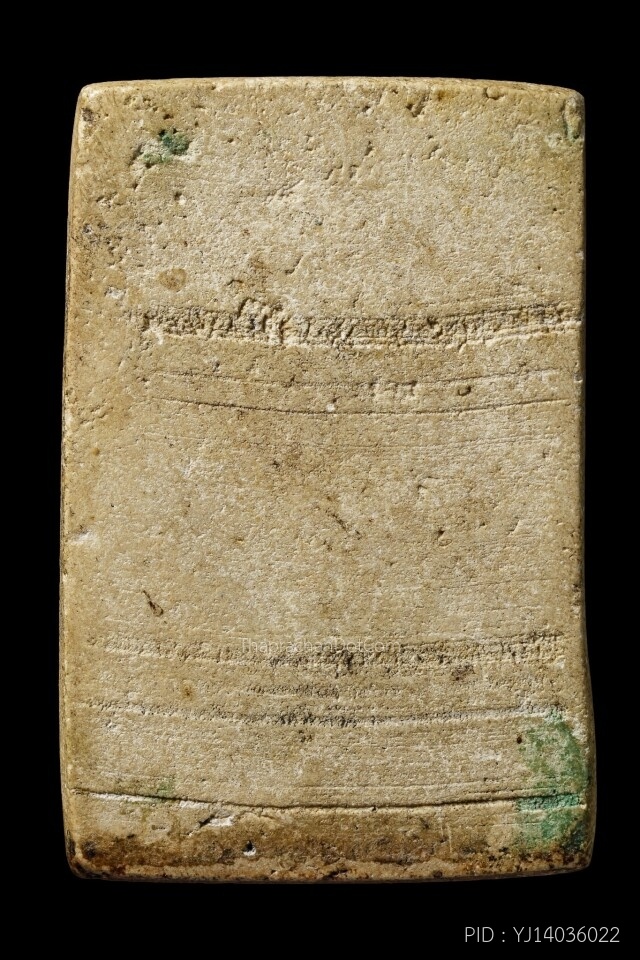 Thaprachan Dot Com
PID : YJ14036022